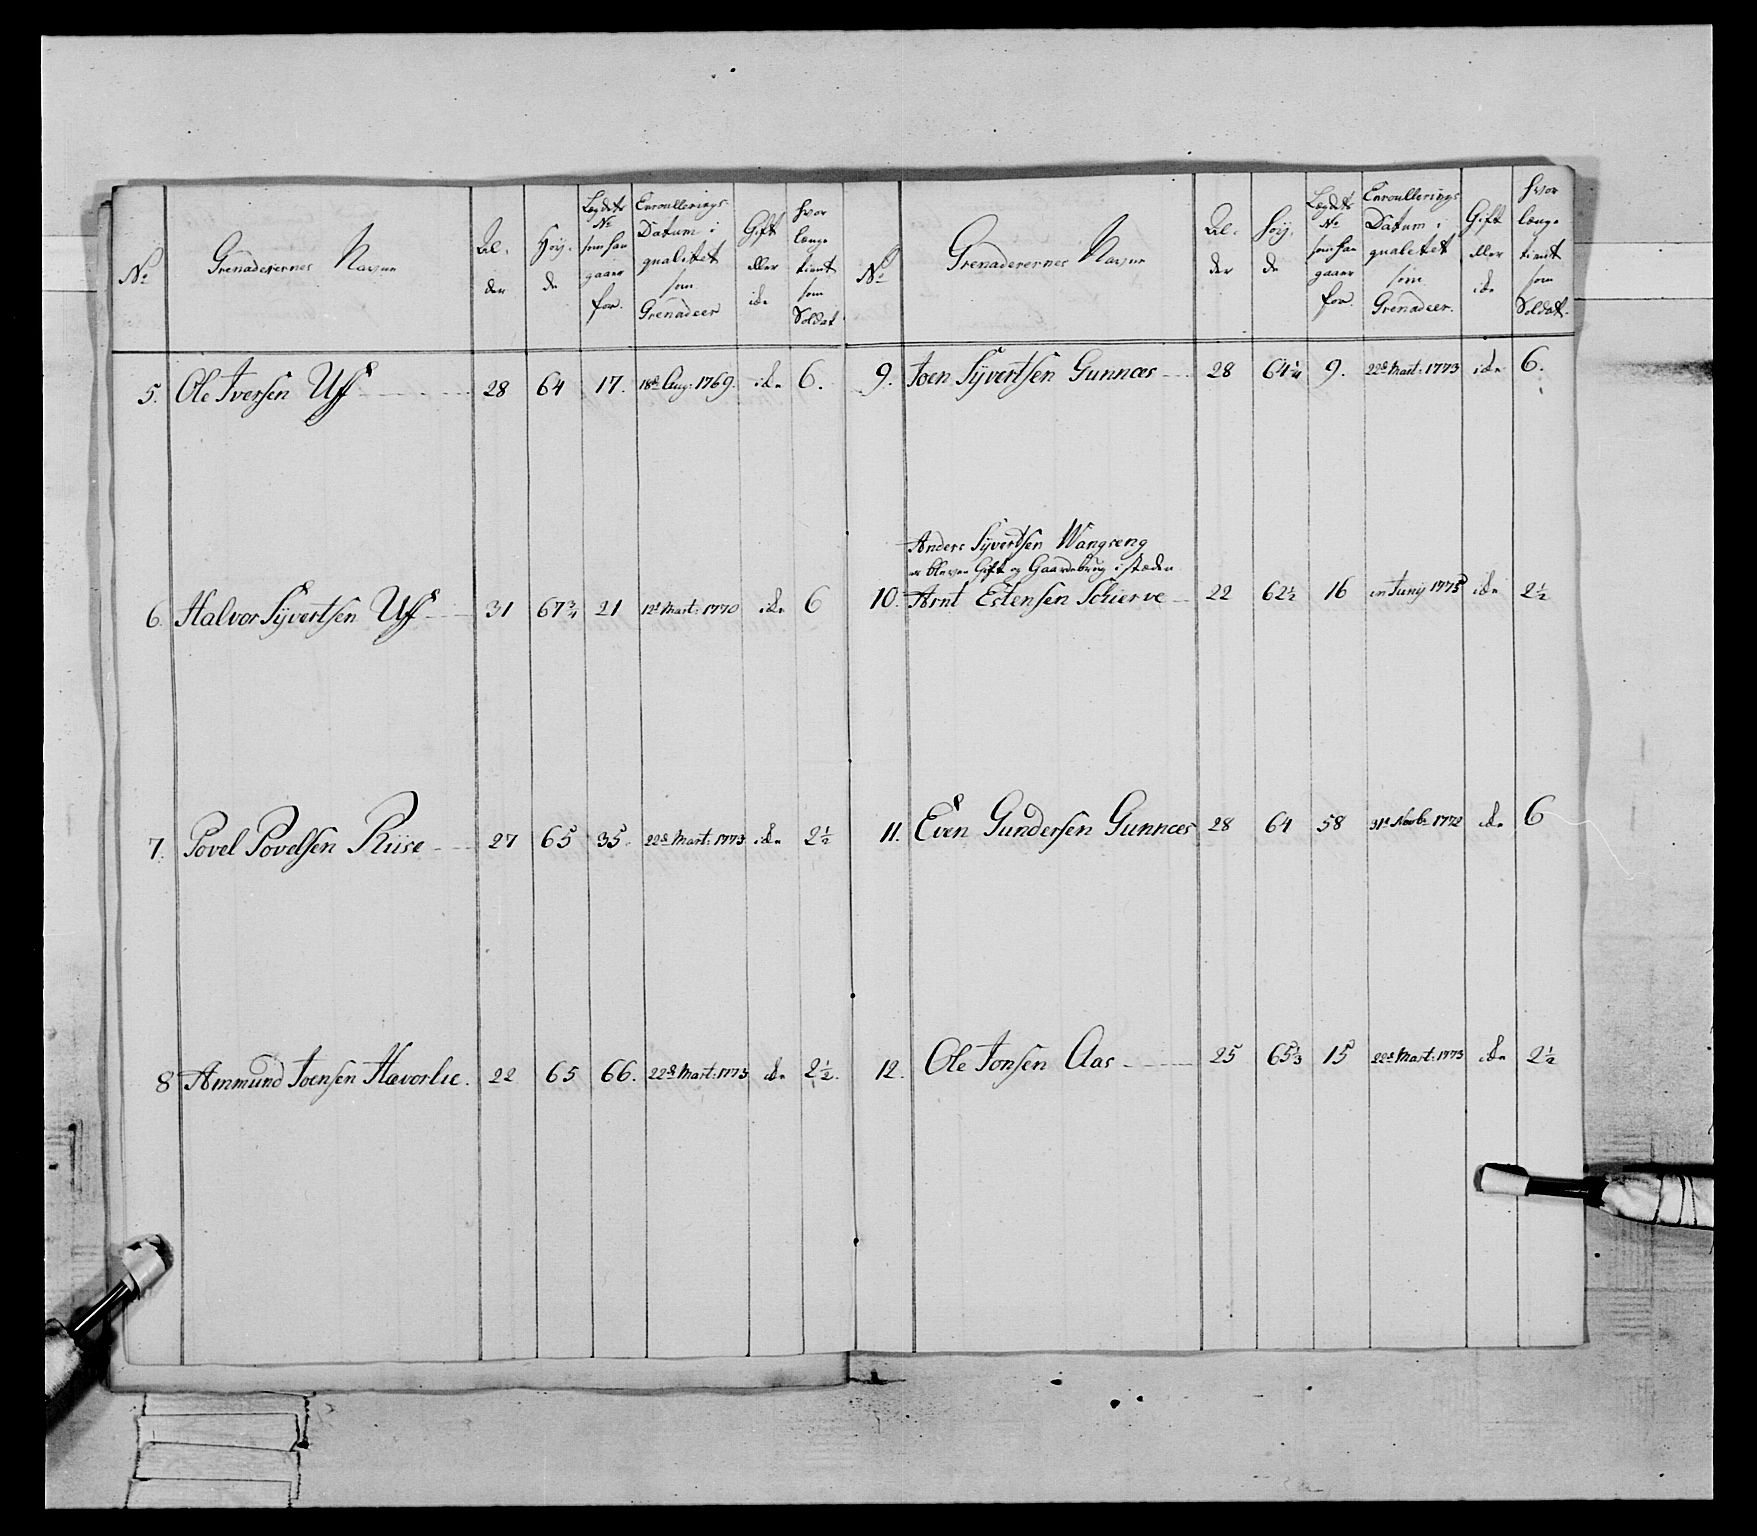 No
Grenaderernes Navne
Al-
der
Høy-
de
Lægdets
No
som han
gaaer
for.
Enroullerings
Datum i
qualitet
som
Grenadeer
Gift
eller
icke
hvor
længe
tient
som
Soldat
5. Ole Iversen Uff 28 64 17. 18de Aug: 1769. icke 6.
6. Halvor Syvertsen Uff 31 67¾ 21 12t Mart: 1770 icke 6
7. Povel Povelsen Riise 27 65 35. 22de Mart: 1773 icke 2½
8 Ammund Joensen Havorlie. 22 65 66. 22de Mart: 1773 icke 2½.
No
Grenaderernes Navne
Al-
der
Høy-
de
Lægdets
No
som han
gaaer
for.
Enroullerings
Datum i
qualitet
som
Grenadeer.
Gift
eller
icke
hvor
længe
tient
som
Soldat.
9. Joen Syvertsen Gunnæs 28 64¼ 9. 22de Mart: 1773 icke 6.
Anders Syvertsen Wangseng
er bleven Gift og Gaardebrug i stæden
10. Arnt Estensen Schierve 22 62½ 16 Juny 1775 icke 2½
11. Even Gundersen Gunnæs 28 64 58 31te Novbr 1772 icke 6
12. Ole Jonsen Aas 25 65⅓ 15 22de Mart: 1773 icke 2½